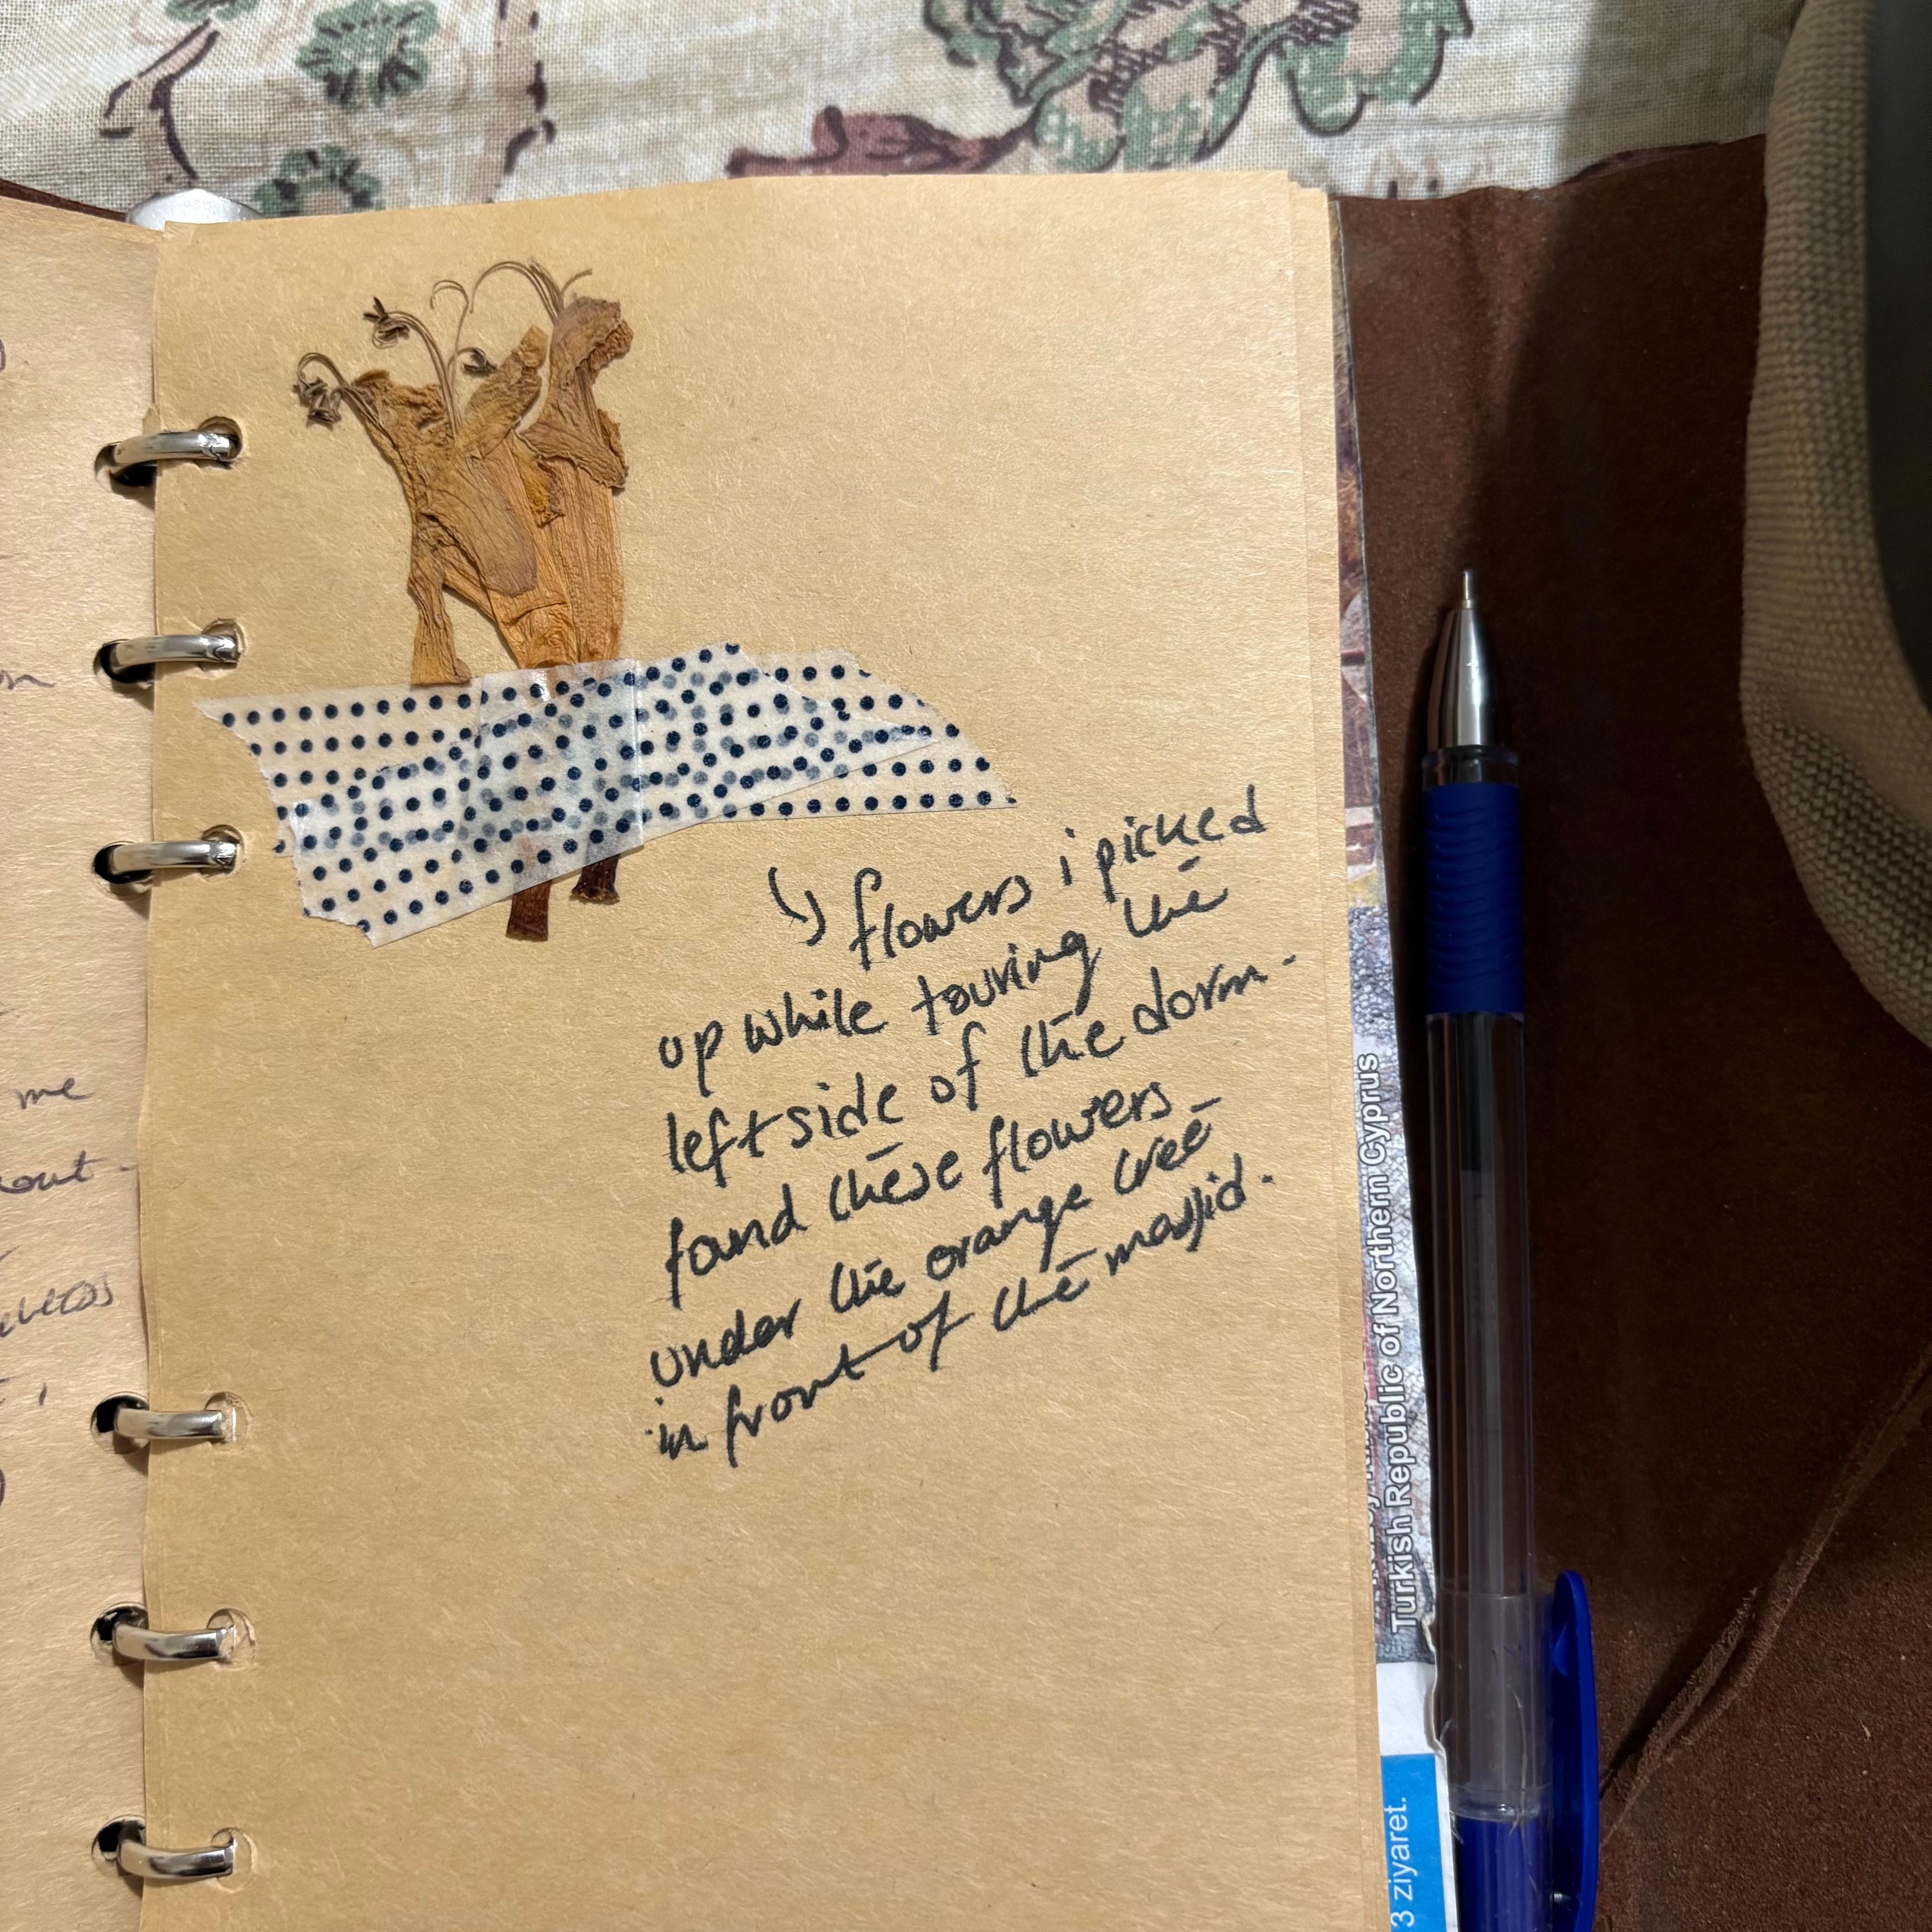 flowers i picked
up while touring the
left side of the dorm.
found these flowers
under the orange tree
in front of the masjid.
me
out.
Turkish Republic of Northern Cyprus
3 ziyaret.